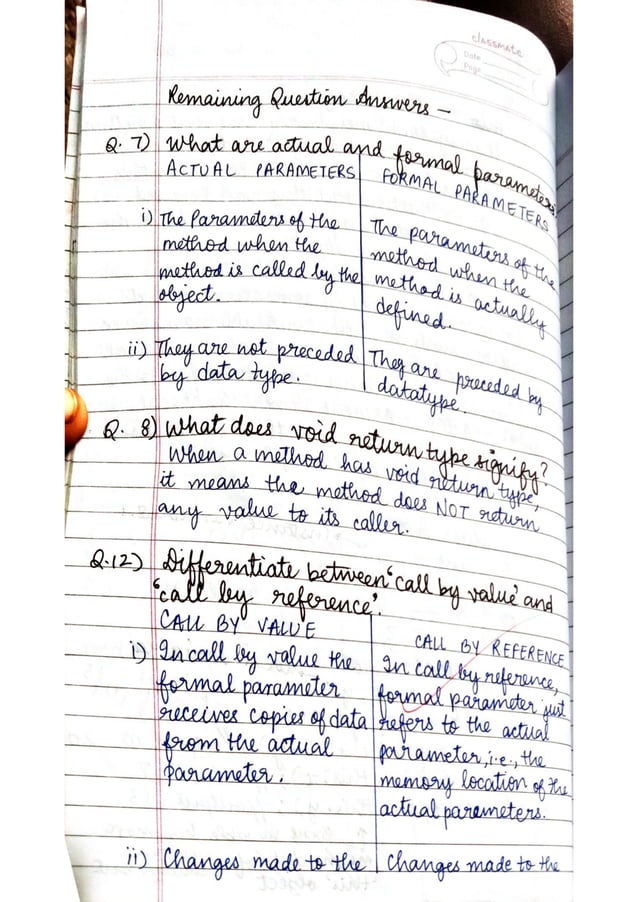 classmate
Date
Page
Remaining Question Answers –
Q. 7) What are actual and formal parameters
ACTUAL PARAMETERS
i) The Parameters of the
method when the
method is called by the
object.
ii) They are not preceded
by data type.
FORMAL PARAMETERS
The parameters of the
method when the
method is actually
defined.
They are preceded by
datatype.
Q. 8) What does void return type signify?
When a method has void return type,
it means the method does NOT return
any value to its caller.
Q.12) Differentiate between 'call by value' and
'call by reference'.
CALL BY VALUE
i) In call by value the
formal parameter
receives copies of data
from the actual
parameter.
ii) Changes made to the
CALL BY REFERENCE
In call by reference,
formal parameter just
refers to the actual
parameter, i.e., the
memory location of the
actual parameters.
Changes made to the